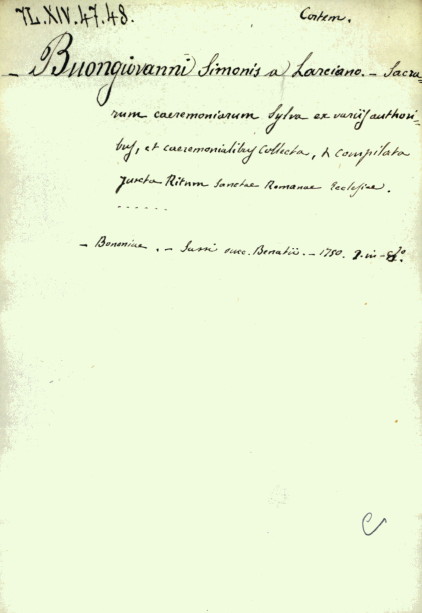 7L.XIV.47.48. Contem.
– Buongiovanni Simonis a Larciano. – Sacra=
rum caeremoniarum Sylva ex variis authori=
bus, et caeremonialibus Collecta, & compilata
juxta Ritum Sanctae Romanae Ecclesiae.
– Bononiae. – Sassi succ. Benatii. – 1750.